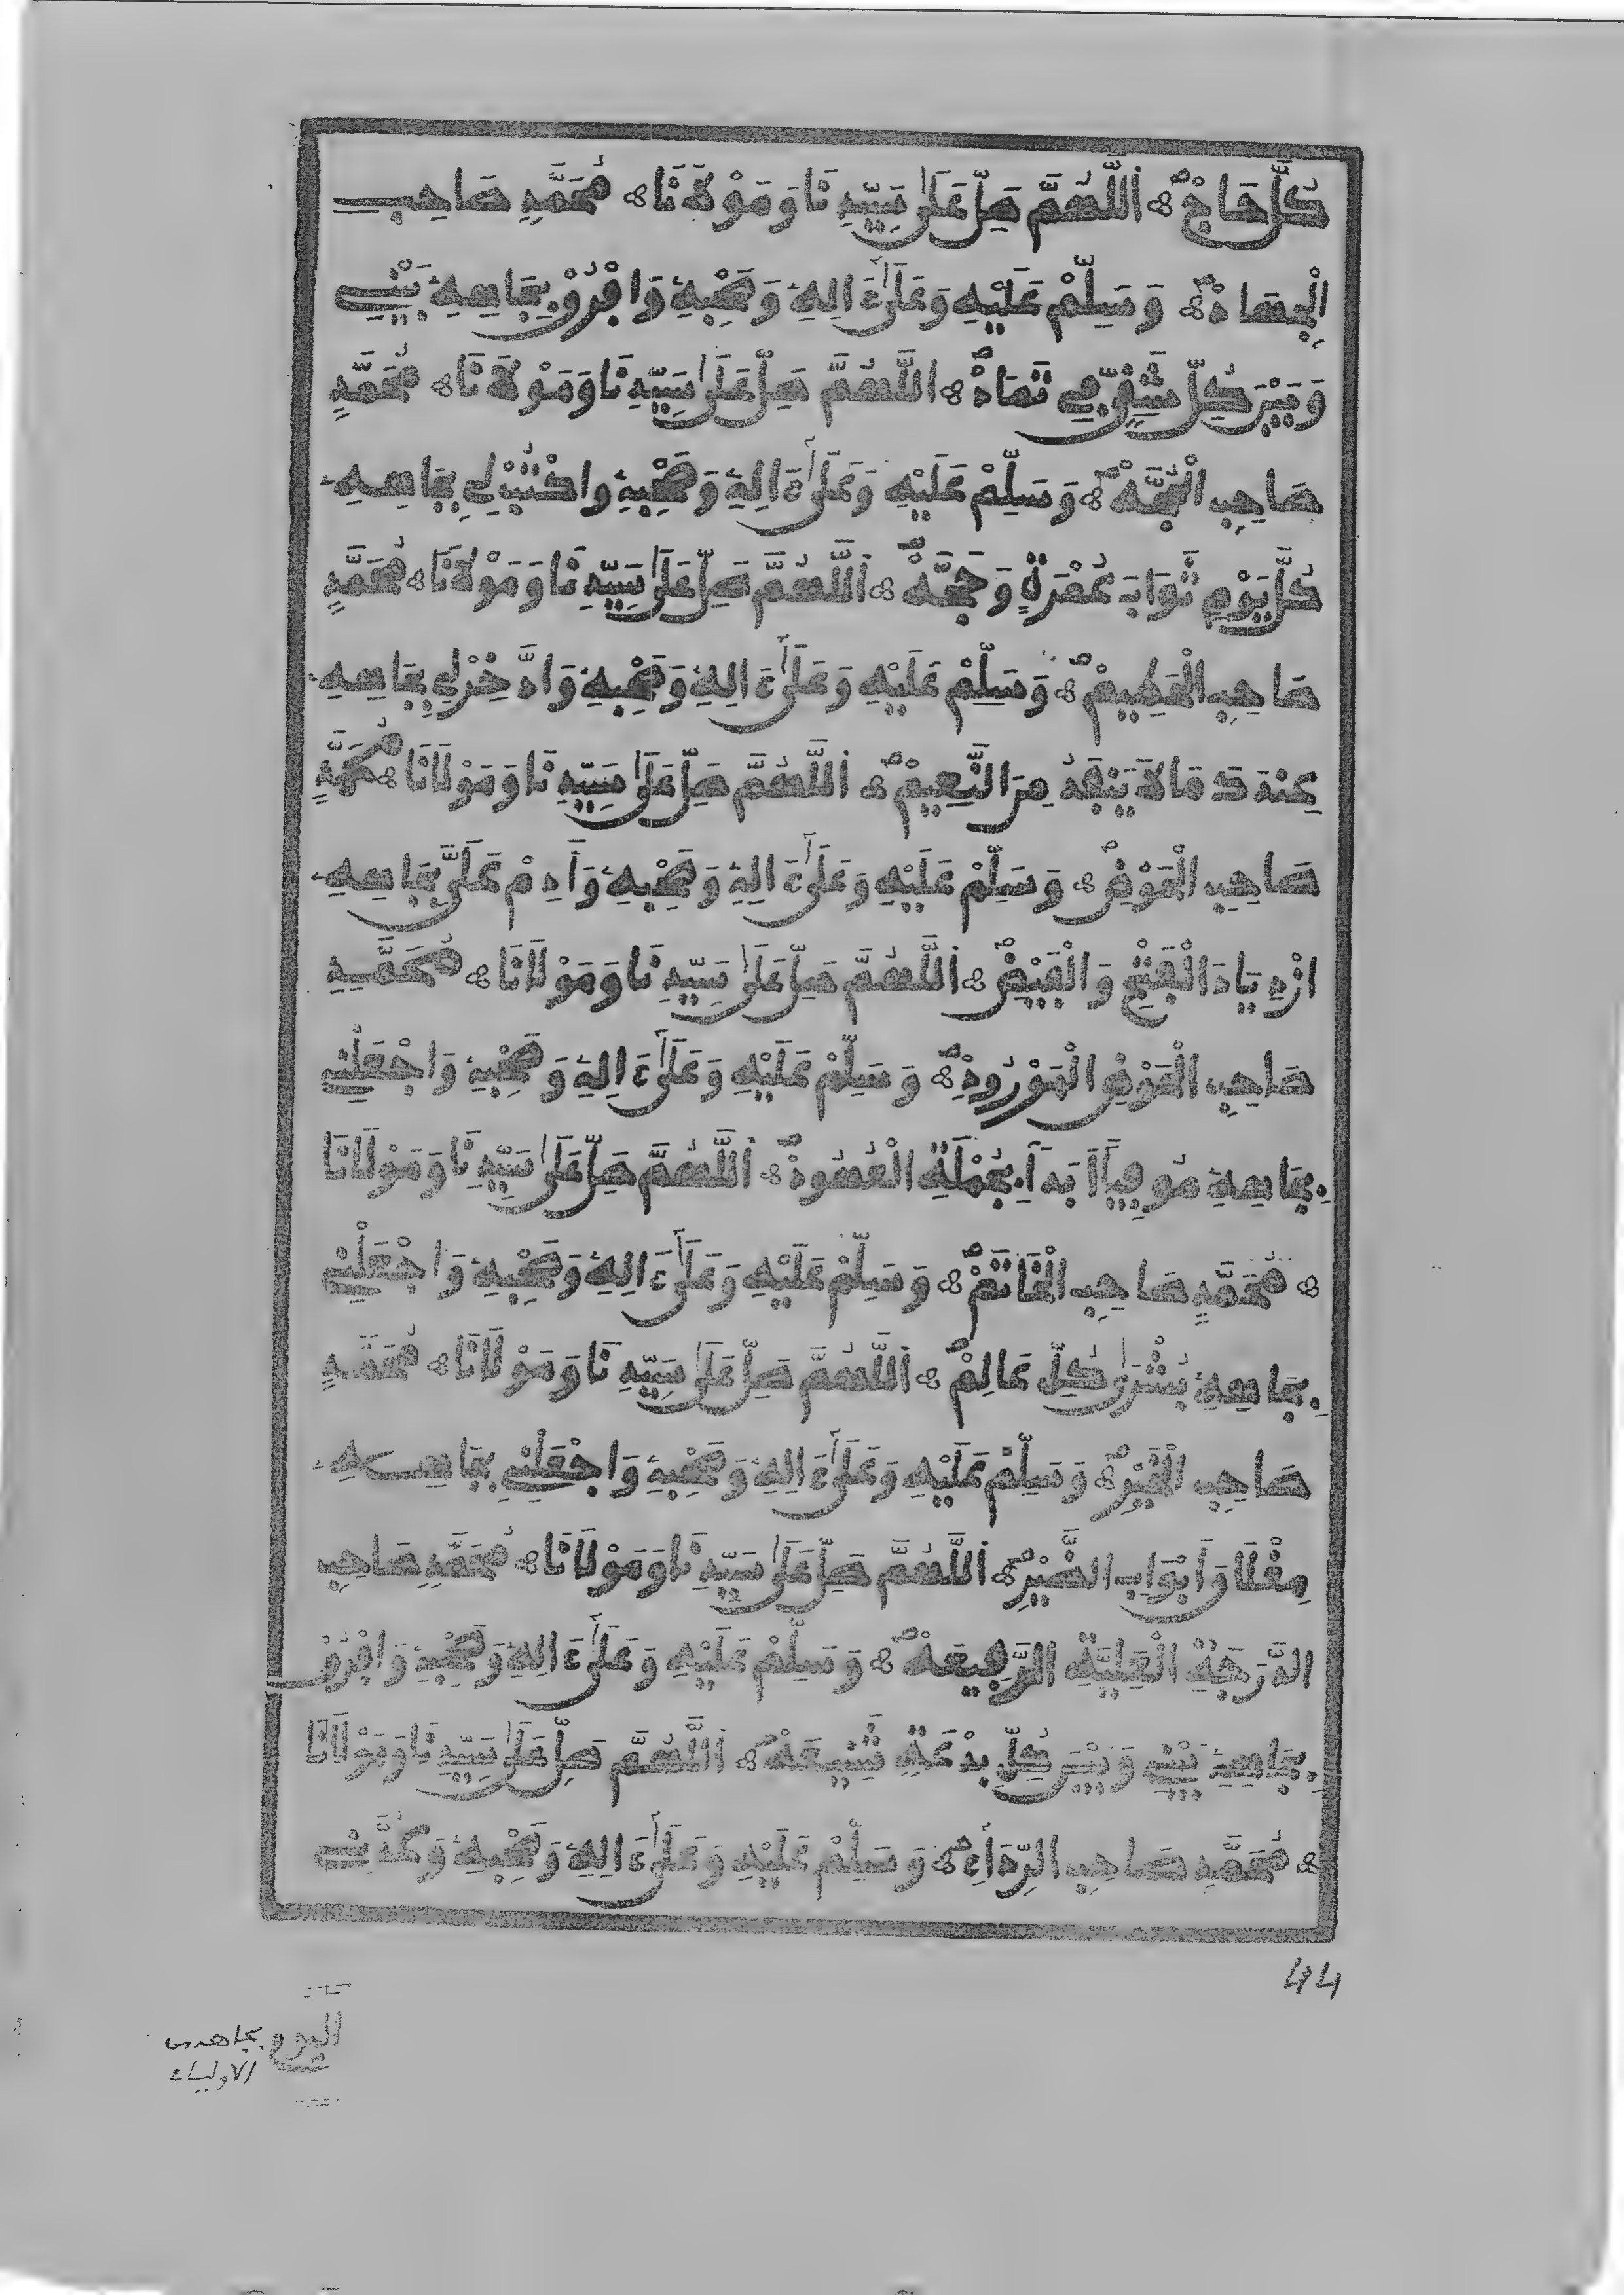 كُلَّ حَاجْ اَللَّهُمَّ صَلِّ عَلَىٰ سَيِّدِنَا وَمَوْلَانَا مُحَمَّدٍ صَاحِبِ
الْجِهَادْ وَسَلِّمْ عَلَيْهِ وَعَلَىٰ ءَالِهِ وَصَحْبِهِ وَافْرُقْ بِجَاهِهِ بَيْنِي
وَبَيْنَ كُلِّ شَقِيٍّ فِي تَمَادْ اَللَّهُمَّ صَلِّ عَلَىٰ سَيِّدِنَا وَمَوْلَانَا مُحَمَّدٍ
صَاحِبِ الْحُجَّهْ وَسَلِّمْ عَلَيْهِ وَعَلَىٰ ءَالِهِ وَصَحْبِهِ وَاكْتُبْ لِي بِجَاهِهِ
كُلَّ يَوْمٍ ثَوَابَ عُمْرَةٍ وَحَجَّهْ اَللَّهُمَّ صَلِّ عَلَىٰ سَيِّدِنَا وَمَوْلَانَا مُحَمَّدٍ
صَاحِبِ الْحَطِيمْ وَسَلِّمْ عَلَيْهِ وَعَلَىٰ ءَالِهِ وَصَحْبِهِ وَادَّخِرْ لِي بِجَاهِهِ
عِندَكَ مَا لَا يَنفَدُ مِنَ النَّعِيمْ اَللَّهُمَّ صَلِّ عَلَىٰ سَيِّدِنَا وَمَوْلَانَا مُحَمَّدٍ
صَاحِبِ الْحَوْضْ وَسَلِّمْ عَلَيْهِ وَعَلَىٰ ءَالِهِ وَصَحْبِهِ وَأَدِمْ عَلَيَّ بِجَاهِهِ
ازْدِيَادَ الْفَتْحِ وَالْفَيْضْ اَللَّهُمَّ صَلِّ عَلَىٰ سَيِّدِنَا وَمَوْلَانَا مُحَمَّدٍ
صَاحِبِ الْحَوْضِ الْمَوْرُودْ وَسَلِّمْ عَلَيْهِ وَعَلَىٰ ءَالِهِ وَصَحْبِهِ وَاجْعَلْنِي
بِجَاهِهِ مُوفِيًا أَبَدًا بِجُمْلَةِ الْعُهُودْ اَللَّهُمَّ صَلِّ عَلَىٰ سَيِّدِنَا وَمَوْلَانَا
مُحَمَّدٍ صَاحِبِ الْخَاتَمْ وَسَلِّمْ عَلَيْهِ وَعَلَىٰ ءَالِهِ وَصَحْبِهِ وَاجْعَلْنِي
بِجَاهِهِ بُشْرَىٰ كُلِّ عَالِمْ اَللَّهُمَّ صَلِّ عَلَىٰ سَيِّدِنَا وَمَوْلَانَا مُحَمَّدٍ
صَاحِبِ الْخَيْرْ وَسَلِّمْ عَلَيْهِ وَعَلَىٰ ءَالِهِ وَصَحْبِهِ وَاجْعَلْنِي بِجَاهِهِ
مِغْلَاقَ أَبْوَابِ الضَّيْرْ اَللَّهُمَّ صَلِّ عَلَىٰ سَيِّدِنَا وَمَوْلَانَا مُحَمَّدٍ صَاحِبِ
الدَّرَجَةِ الْعَلِيَّةِ الرَّفِيعَهْ وَسَلِّمْ عَلَيْهِ وَعَلَىٰ ءَالِهِ وَصَحْبِهِ وَافْرُقْ
بِجَاهِهِ بَيْنِي وَبَيْنَ كُلِّ بِدْعَةٍ شَنِيعَهْ اَللَّهُمَّ صَلِّ عَلَىٰ سَيِّدِنَا وَمَوْلَانَا
مُحَمَّدٍ صَاحِبِ الرِّدَاءْ وَسَلِّمْ عَلَيْهِ وَعَلَىٰ ءَالِهِ وَصَحْبِهِ وَعُدَّنِي
44
اليوم بجاهه من
الاولياء